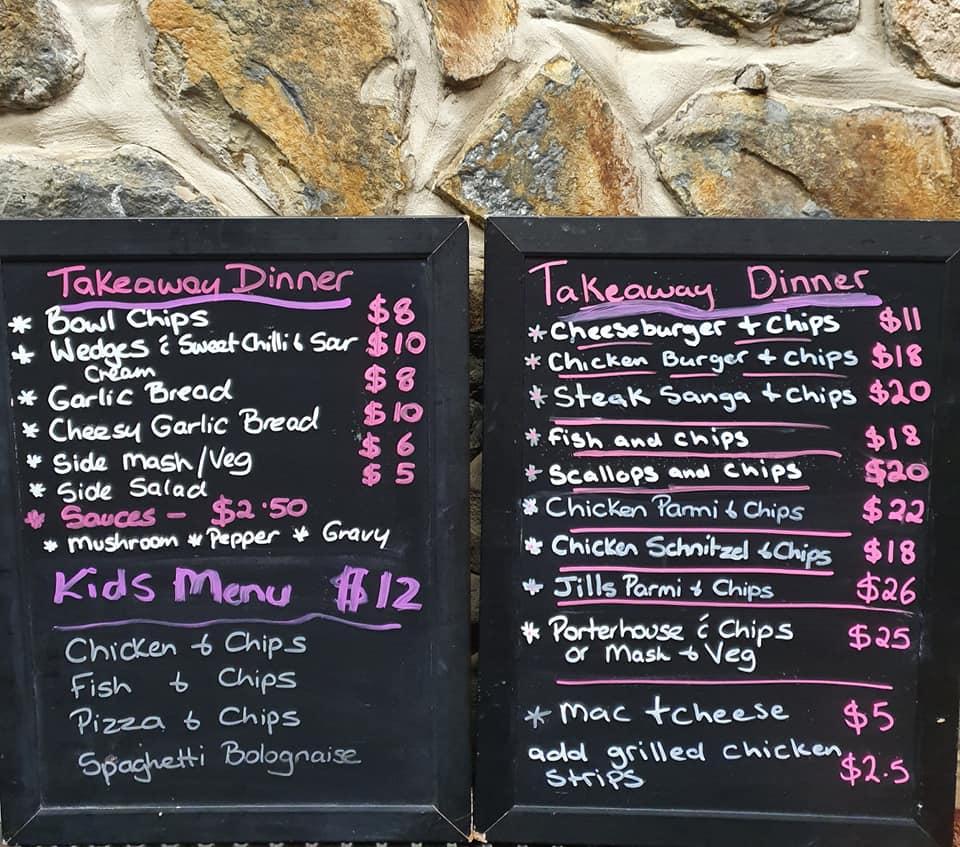 Takeaway Dinner
* Bowl Chips $8
* Wedges & Sweet Chilli & Sar $10
Cream
* Garlic Bread $8
* Cheesy Garlic Bread $10
* Side Mash/Veg $6
* Side Salad $5
* Sauces - $2.50
* Mushroom * Pepper * Gravy
Kids Menu $12
Chicken & Chips
Fish & Chips
Pizza & Chips
Spaghetti Bolognaise
Takeaway Dinner
* Cheeseburger + Chips $11
* Chicken Burger + chips $18
* Steak Sanga + Chips $20
* Fish and chips $18
* Scallops and chips $20
* Chicken Parmi & Chips $22
* Chicken Schnitzel & Chips $18
* Jills Parmi & Chips $26
* Porterhouse & Chips $25
or Mash & Veg
* Mac + cheese $5
add grilled chicken
strips $2.5